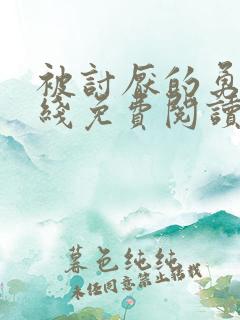 被討厭的勇
綫免費閱讀
暮色纯纯
未经同意禁止转载